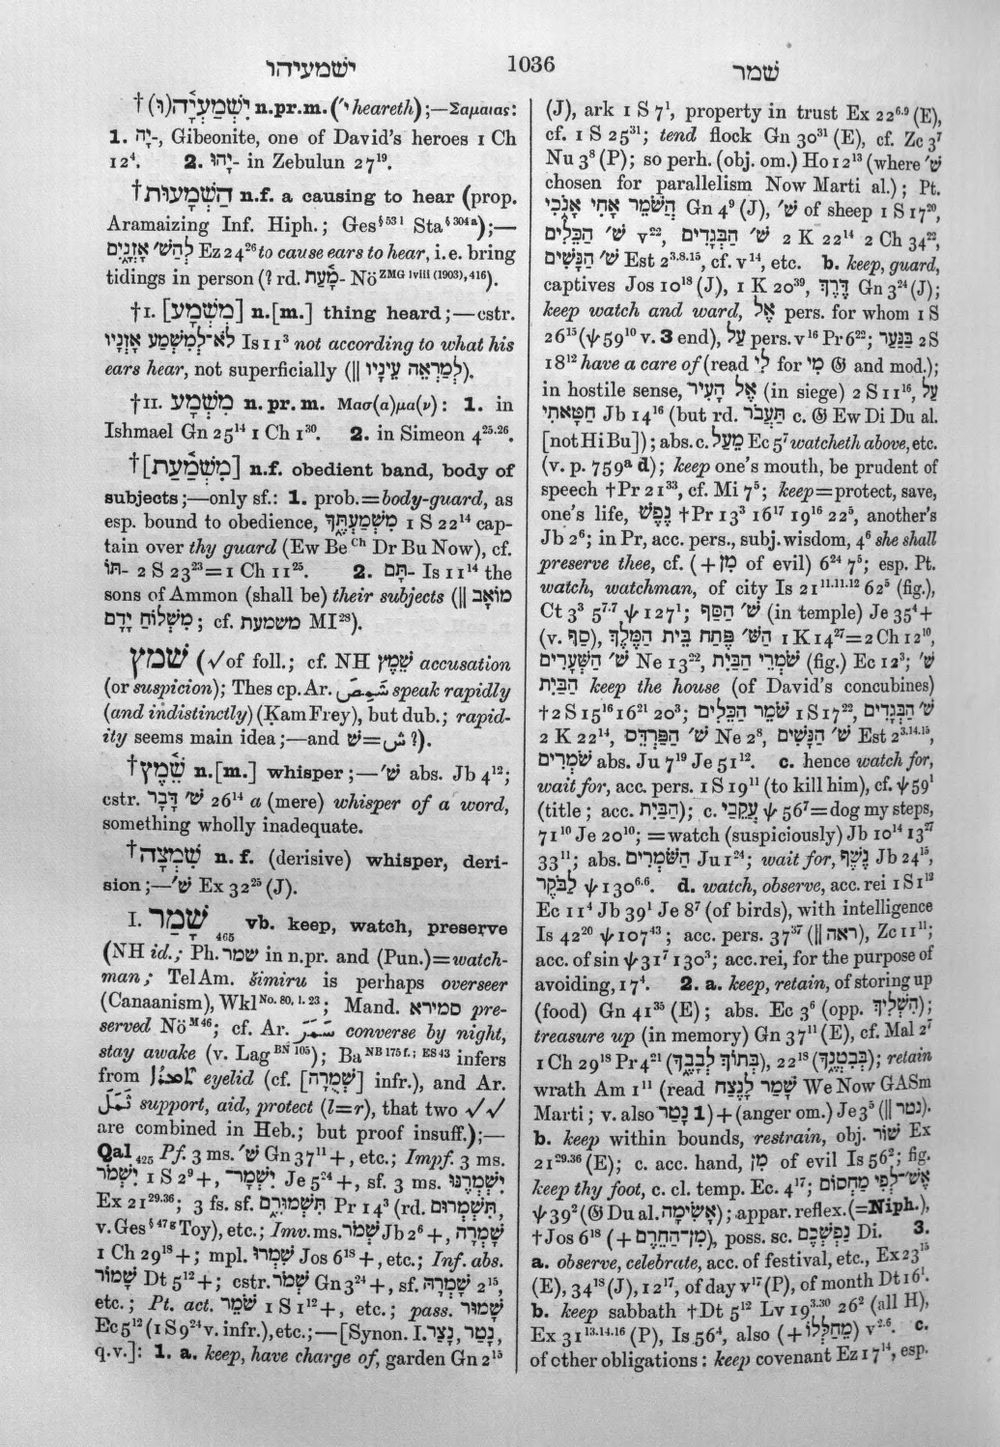 ישמעיהו
1036
שׁמר
†יִשְׁמַעְיָה(וּ) n.pr.m. (׳י heareth);—Σαμαιας:
1. יָה-, Gibeonite, one of David's heroes 1 Ch
12⁴. 2. יָהוּ- in Zebulun 27¹⁹.
†הַשְׁמָעוּת n.f. a causing to hear (prop.
Aramaizing Inf. Hiph.; Ges§ 53 l Sta§ 304 a);—
לְהַשׁ׳ אָזְנָ֑יִם Ez 24²⁶ to cause ears to hear, i.e. bring
tidings in person (? rd. מָ֫עַת- Nö ZMG lviii (1903), 416).
†I. [מִשְׁמָע] n.[m.] thing heard;—cstr.
לֹא־לְמִשְׁמַע אָזְנָיו Is 11³ not according to what his
ears hear, not superficially (|| לְמַרְאֵה עֵינָיו).
†II. מִשְׁמָע n.pr.m. Μασ(α)μα(ν): 1. in
Ishmael Gn 25¹⁴ 1 Ch 1³⁰. 2. in Simeon 4²⁵·²⁶.
†[מִשְׁמַ֫עַת] n.f. obedient band, body of
subjects;—only sf.: 1. prob.=body-guard, as
esp. bound to obedience, מִשְׁמַעְתֶּ֑ךָ 1 S 22¹⁴ cap-
tain over thy guard (Ew Be Ch Dr Bu Now), cf.
תּוֹ- 2 S 23²³=1 Ch 11²⁵. 2. תָּם- Is 11¹⁴ the
sons of Ammon (shall be) their subjects (|| מוֹאָב
מִשְׁלוֹחַ יָדָם; cf. משמעת MI²⁸).
שׁמץ (√of foll.; cf. NH שֶׁמֶץ accusation
(or suspicion); Thes cp. Ar. شَمَصَ speak rapidly
(and indistinctly) (Ḳam Frey), but dub.; rapid-
ity seems main idea;—and שׁ=ش ?).
†שֵׁ֫מֶץ n.[m.] whisper;—שׁ׳ abs. Jb 4¹²;
cstr. שׁ׳ דָּבָר 26¹⁴ a (mere) whisper of a word,
something wholly inadequate.
†שִׁמְצָה n.f. (derisive) whisper, deri-
sion;—שׁ׳ Ex 32²⁵ (J).
I. שָׁמַר 465 vb. keep, watch, preserve
(NH id.; Ph. שמר in n.pr. and (Pun.)=watch-
man; Tel Am. šimiru is perhaps overseer
(Canaanism), Wkl No. 80, l. 23; Mand. סמירא pre-
served Nö M 46; cf. Ar. سَمَرَ converse by night,
stay awake (v. Lag BN 105); Ba NB 175 f.; ES 43 infers
from eyelid (cf. [שְׁמֻרָה] infr.), and Ar.
ثَمَلَ support, aid, protect (l=r), that two √√
are combined in Heb.; but proof insuff.);—
Qal 425 Pf. 3 ms. שׁ׳ Gn 37¹¹+, etc.; Impf. 3 ms.
יִשְׁמֹר 1 S 2⁹+, יִשְׁמָר־ Je 5²⁴+, sf. 3 ms. יִשְׁמְרֶנּוּ
Ex 21²⁹·³⁶; 3 fs. sf. תִּשְׁמוּרֵם Pr 14³ (rd. תִּשְׁמְרוּם,
v. Ges§ 47 g Toy), etc.; Imv. ms. שְׁמֹר Jb 2⁶+, שָׁמְרָה
1 Ch 29¹⁸+; mpl. שִׁמְרוּ Jos 6¹⁸+, etc.; Inf. abs.
שָׁמוֹר Dt 5¹²+; cstr. שְׁמֹר Gn 3²⁴+, sf. שָׁמְרָהּ 2¹⁵,
etc.; Pt. act. שֹׁמֵר 1 S 1¹²+, etc.; pass. שָׁמוּר
Ec 5¹² (1 S 9²⁴ v. infr.), etc.;—[Synon. I. נָטַר, נָצַר,
q.v.]: 1. a. keep, have charge of, garden Gn 2¹⁵
(J), ark 1 S 7¹, property in trust Ex 22⁶·⁹ (E),
cf. 1 S 25³¹; tend flock Gn 30³¹ (E), cf. Zc 3⁷
Nu 3⁸ (P); so perh. (obj. om.) Ho 12¹³ (where שׁ׳
chosen for parallelism Now Marti al.); Pt.
הֲשֹׁמֵר אָחִי אָנֹכִי Gn 4⁹ (J), שׁ׳ of sheep 1 S 17²⁰,
שׁ׳ הַכֵּלִים v²², שׁ׳ הַבְּגָדִים 2 K 22¹⁴ 2 Ch 34²²,
שׁ׳ הַנָּשִׁים Est 2³·⁸·¹⁵, cf. v¹⁴, etc. b. keep, guard,
captives Jos 10¹⁸ (J), 1 K 20³⁹, דֶּרֶךְ Gn 3²⁴ (J);
keep watch and ward, אֶל pers. for whom 1 S
26¹⁵ (ψ 59¹⁰ v. 3 end), עַל pers. v¹⁶ Pr 6²²; בַּנַּעַר 2 S
18¹² have a care of (read לִי for מִי 𝔊 and mod.);
in hostile sense, אֶל הָעִיר (in siege) 2 S 11¹⁶, עַל
חַטָּאתִי Jb 14¹⁶ (but rd. תַּעֲבֹר c. 𝔊 Ew Di Du al.
[not Hi Bu]); abs. c. מֵעַל Ec 5⁷ watcheth above, etc.
(v. p. 759ᵃ d); keep one's mouth, be prudent of
speech †Pr 21²³, cf. Mi 7⁵; keep=protect, save,
one's life, נֶפֶשׁ †Pr 13³ 16¹⁷ 19¹⁶ 22⁵, another's
Jb 2⁶; in Pr, acc. pers., subj. wisdom, 4⁶ she shall
preserve thee, cf. (+מִן of evil) 6²⁴ 7⁵; esp. Pt.
watch, watchman, of city Is 21¹¹·¹¹·¹² 62⁵ (fig.),
Ct 3³ 5⁷·⁷ ψ 127¹; שׁ׳ הַסַּף (in temple) Je 35⁴+
(v. סַף), הַשּׁ׳ פֶּתַח בֵּית הַמֶּלֶךְ 1 K 14²⁷=2 Ch 12¹⁰,
שׁ׳ הַשְּׁעָרִים Ne 13²², שֹׁמְרֵי הַבַּיִת (fig.) Ec 12³; שׁ׳
הַבַּיִת keep the house (of David's concubines)
†2 S 15¹⁶ 16²¹ 20³; שֹׁמֵר הַכֵּלִים 1 S 17²², שׁ׳ הַבְּגָדִים
2 K 22¹⁴, שׁ׳ הַפַּרְדֵּס Ne 2⁸, שׁ׳ הַנָּשִׁים Est 2³·¹⁴·¹⁵,
שֹׁמְרִים abs. Ju 7¹⁹ Je 51¹². c. hence watch for,
wait for, acc. pers. 1 S 19¹¹ (to kill him), cf. ψ 59¹
(title; acc. הַבַּיִת); c. עֲקֵבַי ψ 56⁷=dog my steps,
71¹⁰ Je 20¹⁰; =watch (suspiciously) Jb 10¹⁴ 13²⁷
33¹¹; abs. הַשֹּׁמְרִים Ju 1²⁴; wait for, נֶשֶׁף Jb 24¹⁵,
לַבֹּקֶר ψ 130⁶·⁶. d. watch, observe, acc. rei 1 S 1¹²
Ec 11⁴ Jb 39¹ Je 8⁷ (of birds), with intelligence
Is 42²⁰ ψ 107⁴³; acc. pers. 37³⁷ (|| ראה), Zc 11¹¹;
acc. of sin ψ 31⁷ 130³; acc. rei, for the purpose of
avoiding, 17⁴. 2. a. keep, retain, of storing up
(food) Gn 41³⁵ (E); abs. Ec 3⁶ (opp. הִשְׁלִיךְ);
treasure up (in memory) Gn 37¹¹ (E), cf. Mal 2⁷
1 Ch 29¹⁸ Pr 4²¹ (בְּתוֹךְ לְבָבֶךָ), 22¹⁸ (בְּבִטְנֶךָ); retain
wrath Am 1¹¹ (read שָׁמַר לָנֶצַח We Now GASm
Marti; v. also נָטַר 1)+(anger om.) Je 3⁵ (|| נטר).
b. keep within bounds, restrain, obj. שׁוֹר Ex
21²⁹·³⁶ (E); c. acc. hand, מִן of evil Is 56²; fig.
keep thy foot, c. cl. temp. Ec. 4¹⁷; אֶשׁ־לְפִי מַחְסוֹם
ψ 39² (𝔊 Du al. אָשִׂימָה); appar. reflex. (=Niph.),
†Jos 6¹⁸ (+מִן־הַחֵרֶם), poss. sc. נַפְשְׁכֶם Di. 3.
a. observe, celebrate, acc. of festival, etc., Ex 23¹⁵
(E), 34¹⁸ (J), 12¹⁷, of day v¹⁷ (P), of month Dt 16¹.
b. keep sabbath †Dt 5¹² Lv 19³·³⁰ 26² (all H),
Ex 31¹³·¹⁴·¹⁶ (P), Is 56⁴, also (+מֵחַלְּלוֹ) v²·⁶. c.
of other obligations: keep covenant Ez 17¹⁴, esp.